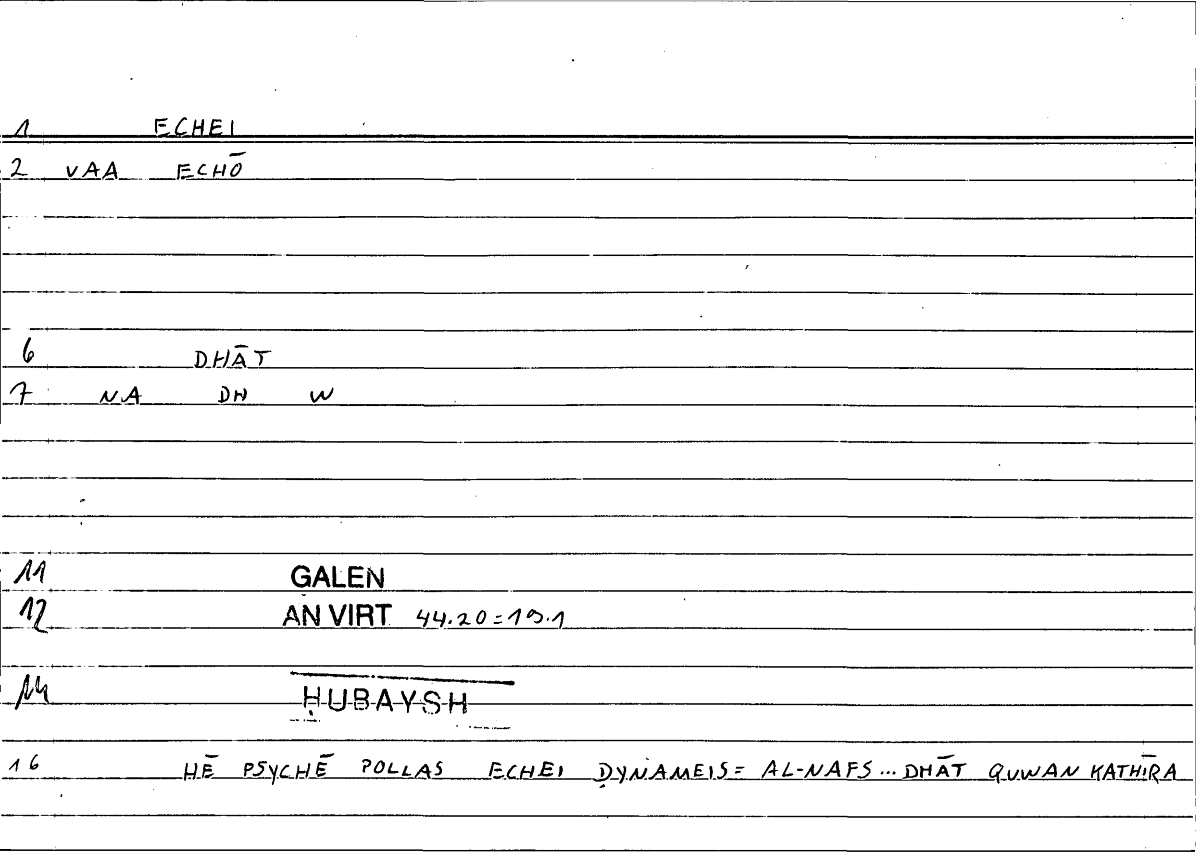 1 ECHEI
2 VAA ECHŌ
6 DHĀT
7 NA DH W
11 GALEN
12 AN VIRT 44.20=19.1
14 ḤUBAYSH
16 HĒ PSYCHĒ POLLAS ECHEI DYNAMEIS = AL-NAFS... DHĀT QUWAN KATHĪRA